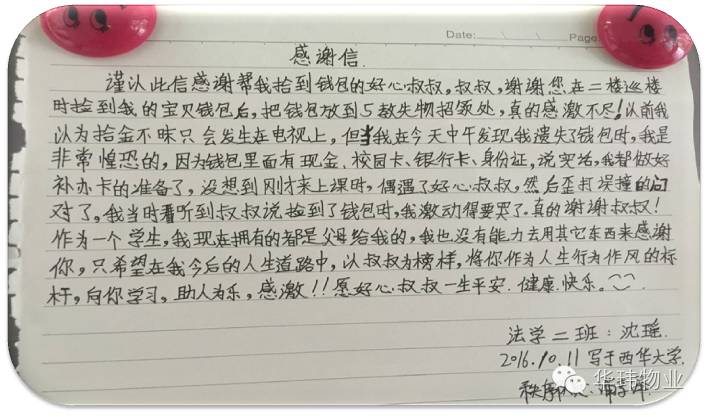 Date:
Page:
感谢信.
谨以此信感谢帮我拾到钱包的好心叔叔。叔叔,谢谢您在二楼巡楼
时捡到我的宝贝钱包后,把钱包放到5教失物招领处,真的感激不尽!以前我
以为拾金不昧只会发生在电视上,但当我在今天中午发现我遗失了钱包时,我是
非常惶恐的,因为钱包里面有现金、校园卡、银行卡、身份证,说实话,我都做好
补办卡的准备了,没想到刚才来上课时,偶遇了好心叔叔,然后歪打误撞的问
对了,我当时看听到叔叔说捡到了钱包时,我激动得要哭了。真的谢谢叔叔!
作为一个学生,我现在拥有的都是父母给我的,我也没有能力去用其它东西来感谢
你,只希望在我今后的人生道路中,以叔叔为榜样,将你作为人生行为作风的标
杆,向你学习,助人为乐,感激!!愿好心叔叔一生平安.健康.快乐。
法学二班:沈瑶.
2016.10.11写于西华大学.
秩序
华玮物业